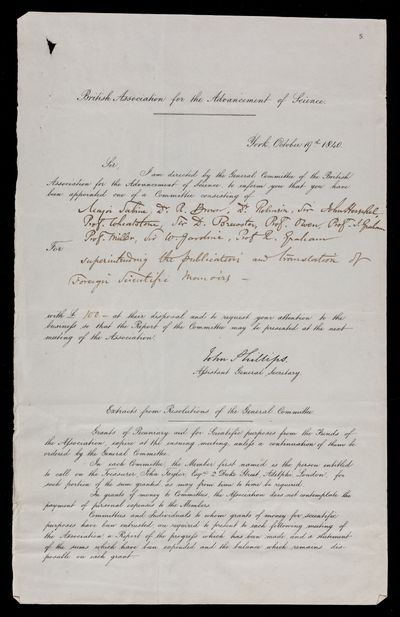 5
British Association for the Advancement of Science.
York, October 19th 1840.
Sir
I am directed by the General Committee of the British
Association for the Advancement of Science, to inform you that you have
been appointed one of a Committee consisting of
Major Sabine, Dr R. Brown, Dr Robinson, Sir John Herschel,
Prof. Wheatstone, Sir D. Brewster, Prof. Owen, Prof. T. Graham
Prof. Miller, Sir W Jardine, Prof R. Graham
For
superintending the publication and translation of
Foreign Scientific Memoirs —
with £ 100 — at their disposal and to request your attention to the
business so that the Report of the Committee may be presented at the next
meeting of the Association.
John Phillips.
Assistant General Secretary
Extracts from Resolutions of the General Committee
Grants of Pecuniary aid for Scientific purposes from the Funds of
the Association, expire at the ensuing meeting unless a continuation of them be
ordered by the General Committee.
In each Committee, the Member first named is the person entitled
to call on the Treasurer, John Taylor Esqre 2 Duke Street, Adelphi, London, for
such portion of the sum granted, as may from time to time be required.
In grants of money to Committees, the Association does not contemplate the
payment of personal expenses to the Members.
Committees and Individuals to whom grants of money for scientific
purposes have been entrusted are required to present to each following meeting of
the Association a Report of the progress which has been made and a statement
of the sums which have been expended and the balance which remains dis-
posable on each grant.